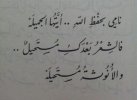 نامي بحفظِ اللهِ .. أيَّتها الجميلَة.
فالشِّعرُ بعدَكِ مُستَحيلٌ ..
والأُنوثَةُ مُستَحيلَة.